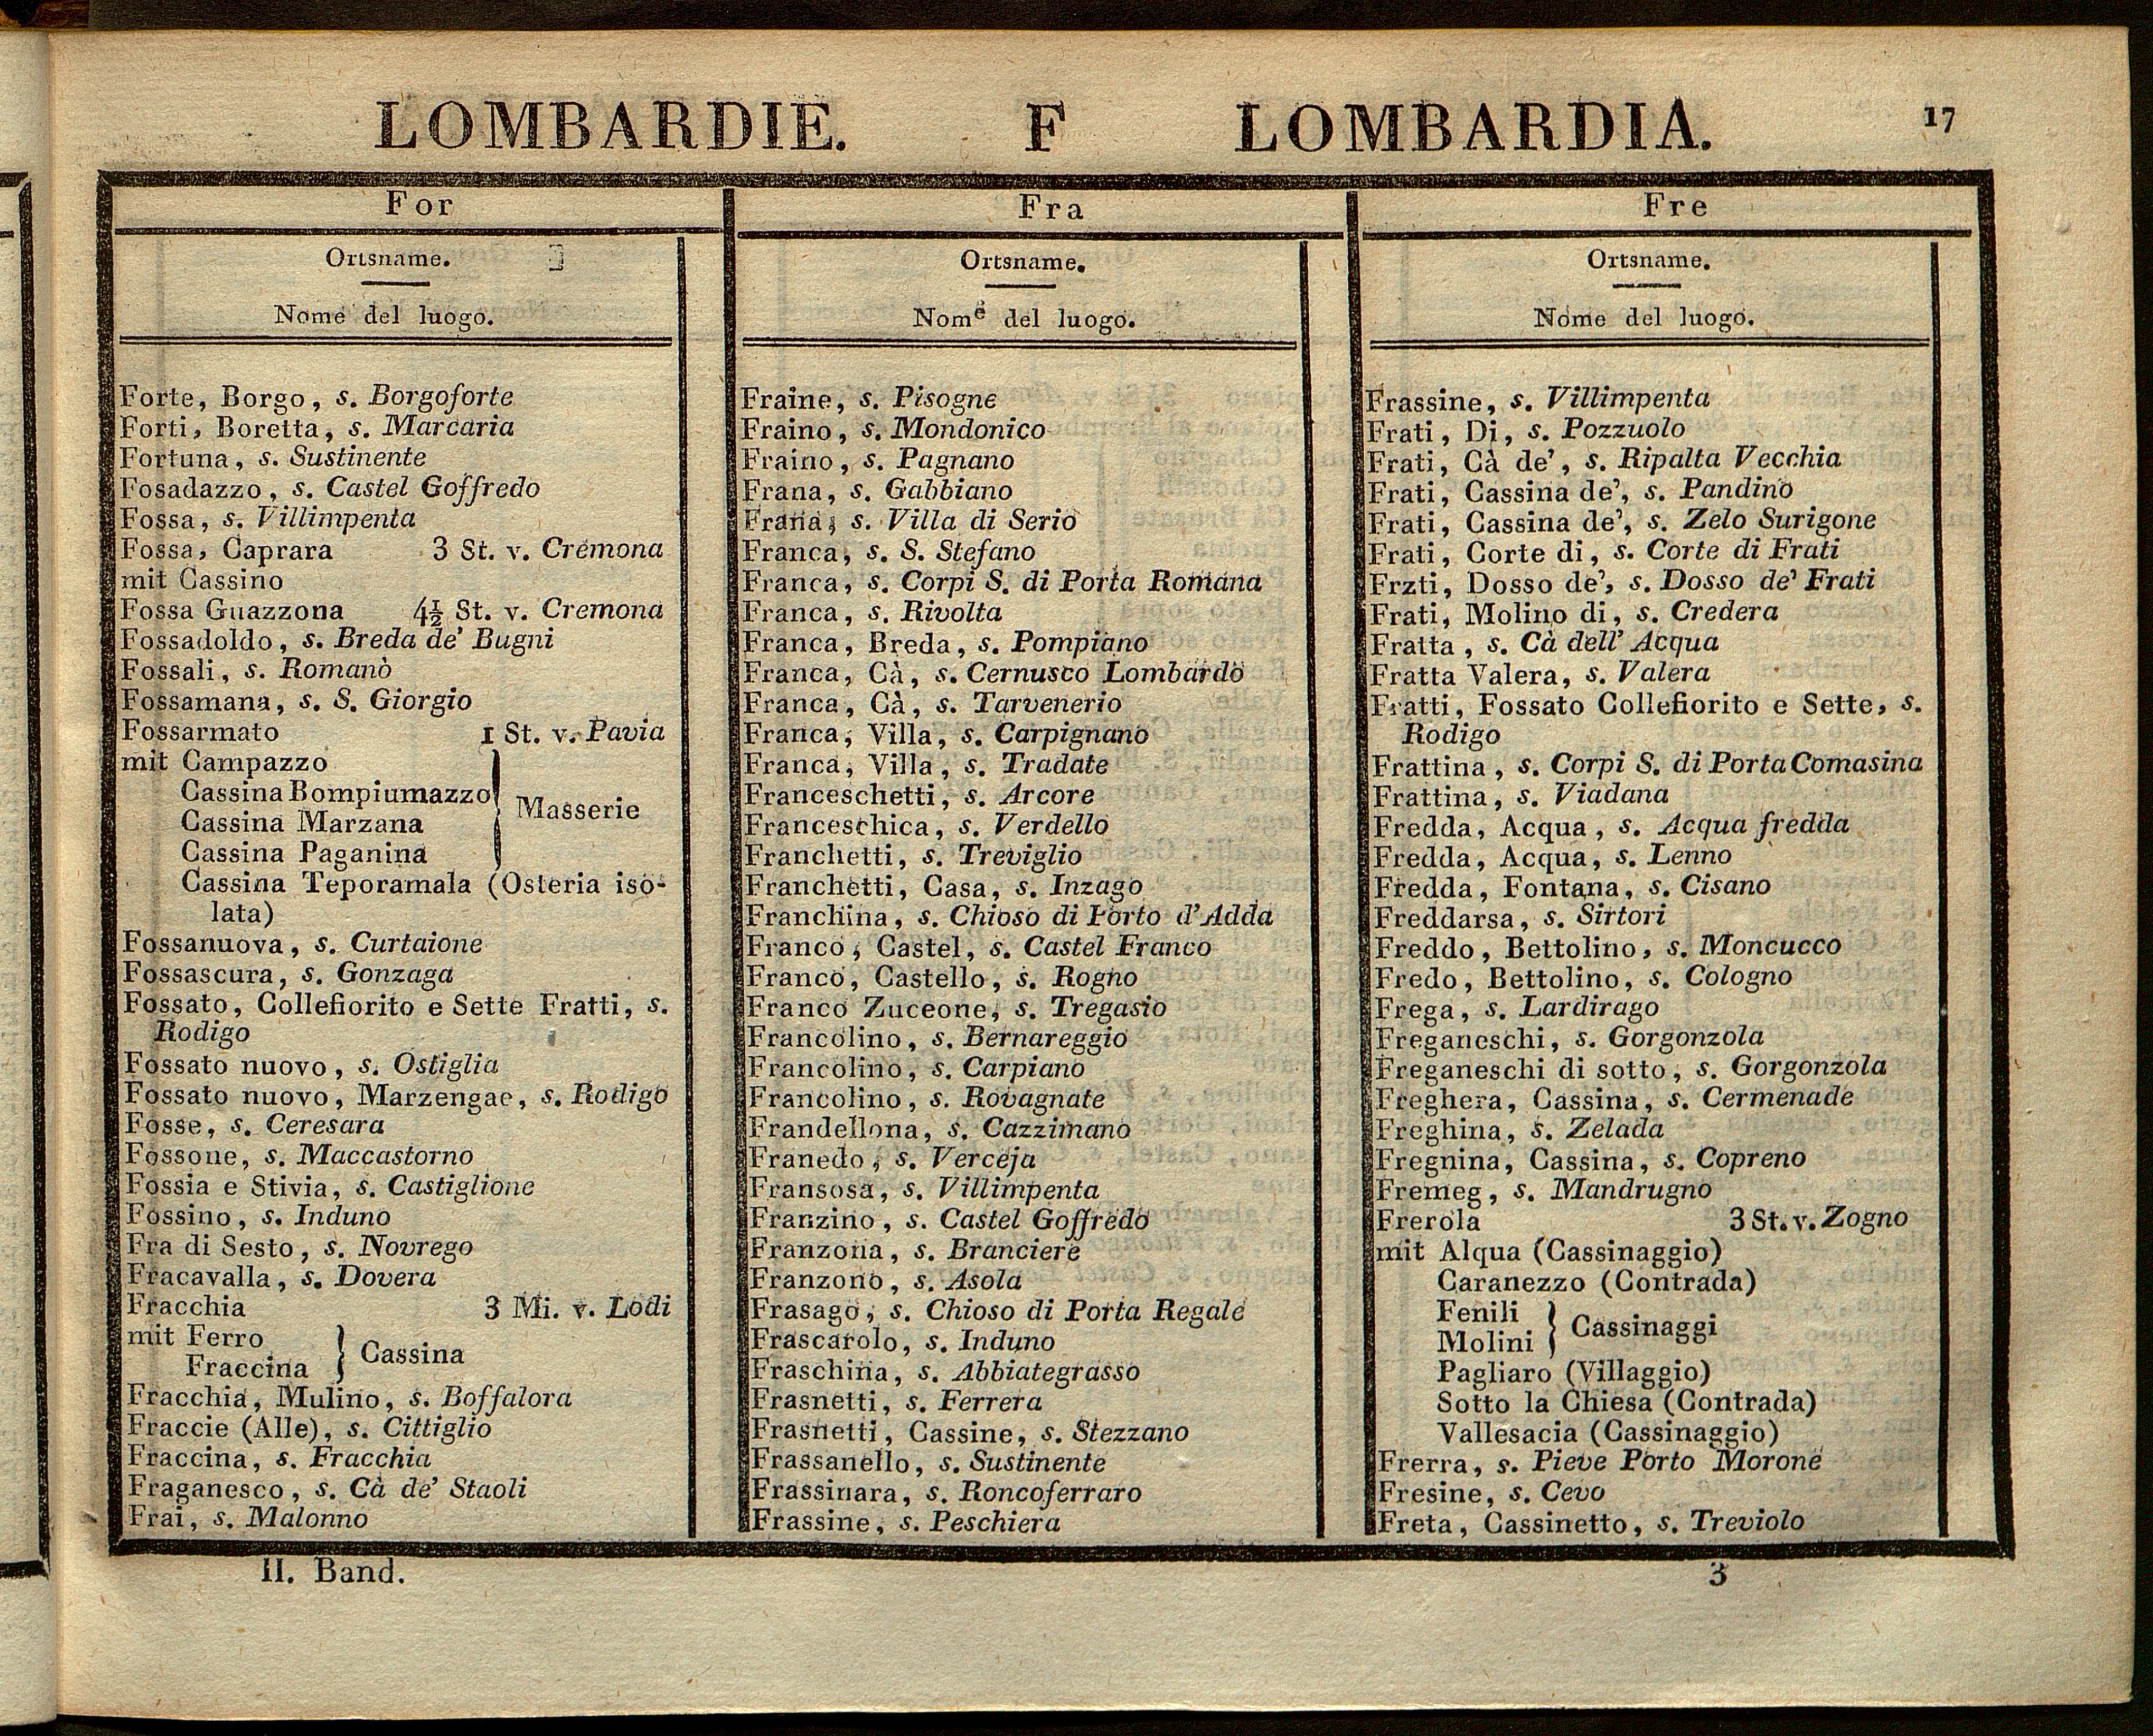 LOMBARDIE. F LOMBARDIA. 17
For
Ortsname.
Nome del luogo.
Forte, Borgo, s. Borgoforte
Forti, Boretta, s. Marcaria
Fortuna, s. Sustinente
Fosadazzo, s. Castel Goffredo
Fossa, s. Villimpenta
Fossa, Caprara 3 St. v. Cremona
mit Cassino
Fossa Guazzona 4½ St. v. Cremona
Fossadoldo, s. Breda de' Bugni
Fossali, s. Romanò
Fossamana, s. S. Giorgio
Fossarmato 1 St. v. Pavia
mit Campazzo
Cassina Bompiumazzo
Cassina Marzana
Cassina Paganina
} Masserie
Cassina Teporamala (Osteria iso-
lata)
Fossanuova, s. Curtaione
Fossascura, s. Gonzaga
Fossato, Collefiorito e Sette Fratti, s.
Rodigo
Fossato nuovo, s. Ostiglia
Fossato nuovo, Marzengac, s. Rodigo
Fosse, s. Ceresara
Fossone, s. Maccastorno
Fossia e Stivia, s. Castiglione
Fossino, s. Induno
Fra di Sesto, s. Novrego
Fracavalla, s. Dovera
Fracchia 3 Mi. v. Lodi
mit Ferro
Fraccina
} Cassina
Fracchia, Mulino, s. Boffalora
Fraccie (Alle), s. Cittiglio
Fraccina, s. Fracchia
Fraganesco, s. Cà de' Staoli
Frai, s. Malonno
II. Band.
Fra
Ortsname.
Nome del luogo.
Fraine, s. Pisogne
Fraino, s. Mondonico
Fraino, s. Pagnano
Frana, s. Gabbiano
Frana, s. Villa di Serio
Franca, s. S. Stefano
Franca, s. Corpi S. di Porta Romana
Franca, s. Rivolta
Franca, Breda, s. Pompiano
Franca, Cà, s. Cernusco Lombardo
Franca, Cà, s. Tarvenerio
Franca, Villa, s. Carpignano
Franca, Villa, s. Tradate
Franceschetti, s. Arcore
Franceschica, s. Verdello
Franchetti, s. Treviglio
Franchetti, Casa, s. Inzago
Franchina, s. Chioso di Porto d'Adda
Franco, Castel, s. Castel Franco
Franco, Castello, s. Rogno
Franco Zuceone, s. Tregasio
Francolino, s. Bernareggio
Francolino, s. Carpiano
Francolino, s. Rovagnate
Frandellona, s. Cazzimano
Franedo, s. Verceja
Fransosa, s. Villimpenta
Franzino, s. Castel Goffredo
Franzona, s. Branciere
Franzono, s. Asola
Frasago, s. Chioso di Porta Regale
Frascarolo, s. Induno
Fraschina, s. Abbiategrasso
Frasnetti, s. Ferrera
Frasnetti, Cassine, s. Stezzano
Frassanello, s. Sustinente
Frassinara, s. Roncoferraro
Frassine, s. Peschiera
Fre
Ortsname.
Nome del luogo.
Frassine, s. Villimpenta
Frati, Di, s. Pozzuolo
Frati, Cà de', s. Ripalta Vecchia
Frati, Cassina de', s. Pandino
Frati, Cassina de', s. Zelo Surigone
Frati, Corte di, s. Corte di Frati
Frzti, Dosso de', s. Dosso de' Frati
Frati, Molino di, s. Credera
Fratta, s. Cà dell' Acqua
Fratta Valera, s. Valera
Fratti, Fossato Collefiorito e Sette, s.
Rodigo
Frattina, s. Corpi S. di Porta Comasina
Frattina, s. Viadana
Fredda, Acqua, s. Acqua fredda
Fredda, Acqua, s. Lenno
Fredda, Fontana, s. Cisano
Freddarsa, s. Sirtori
Freddo, Bettolino, s. Moncucco
Fredo, Bettolino, s. Cologno
Frega, s. Lardirago
Freganeschi, s. Gorgonzola
Freganeschi di sotto, s. Gorgonzola
Freghera, Cassina, s. Cermenade
Freghina, s. Zelada
Fregnina, Cassina, s. Copreno
Fremeg, s. Mandrugno
Frerola 3 St. v. Zogno
mit Alqua (Cassinaggio)
Caranezzo (Contrada)
Fenili
Molini
} Cassinaggi
Pagliaro (Villaggio)
Sotto la Chiesa (Contrada)
Vallesacia (Cassinaggio)
Frerra, s. Pieve Porto Morone
Fresine, s. Cevo
Freta, Cassinetto, s. Treviolo
3